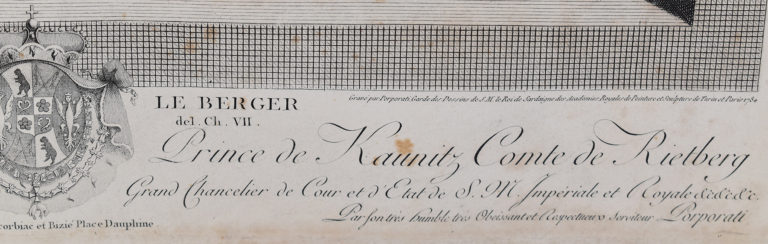 LE BERGER
del. Ch. VII.
Gravé par Porporati, Garde des Dessins de S.M. le Roi de Sardaigne des Academies Royales de Peinture et Sculpture de Turin et Paris 1784
Prince de Kaunitz Comte de Rietberg
Grand Chancelier de Cour et d'Etat de S. M. Impériale et Royale &c &c &c.
Par son très humble très Obeissant et Respectueux Serviteur Porporati
corbiac et Bizié Place Dauphine